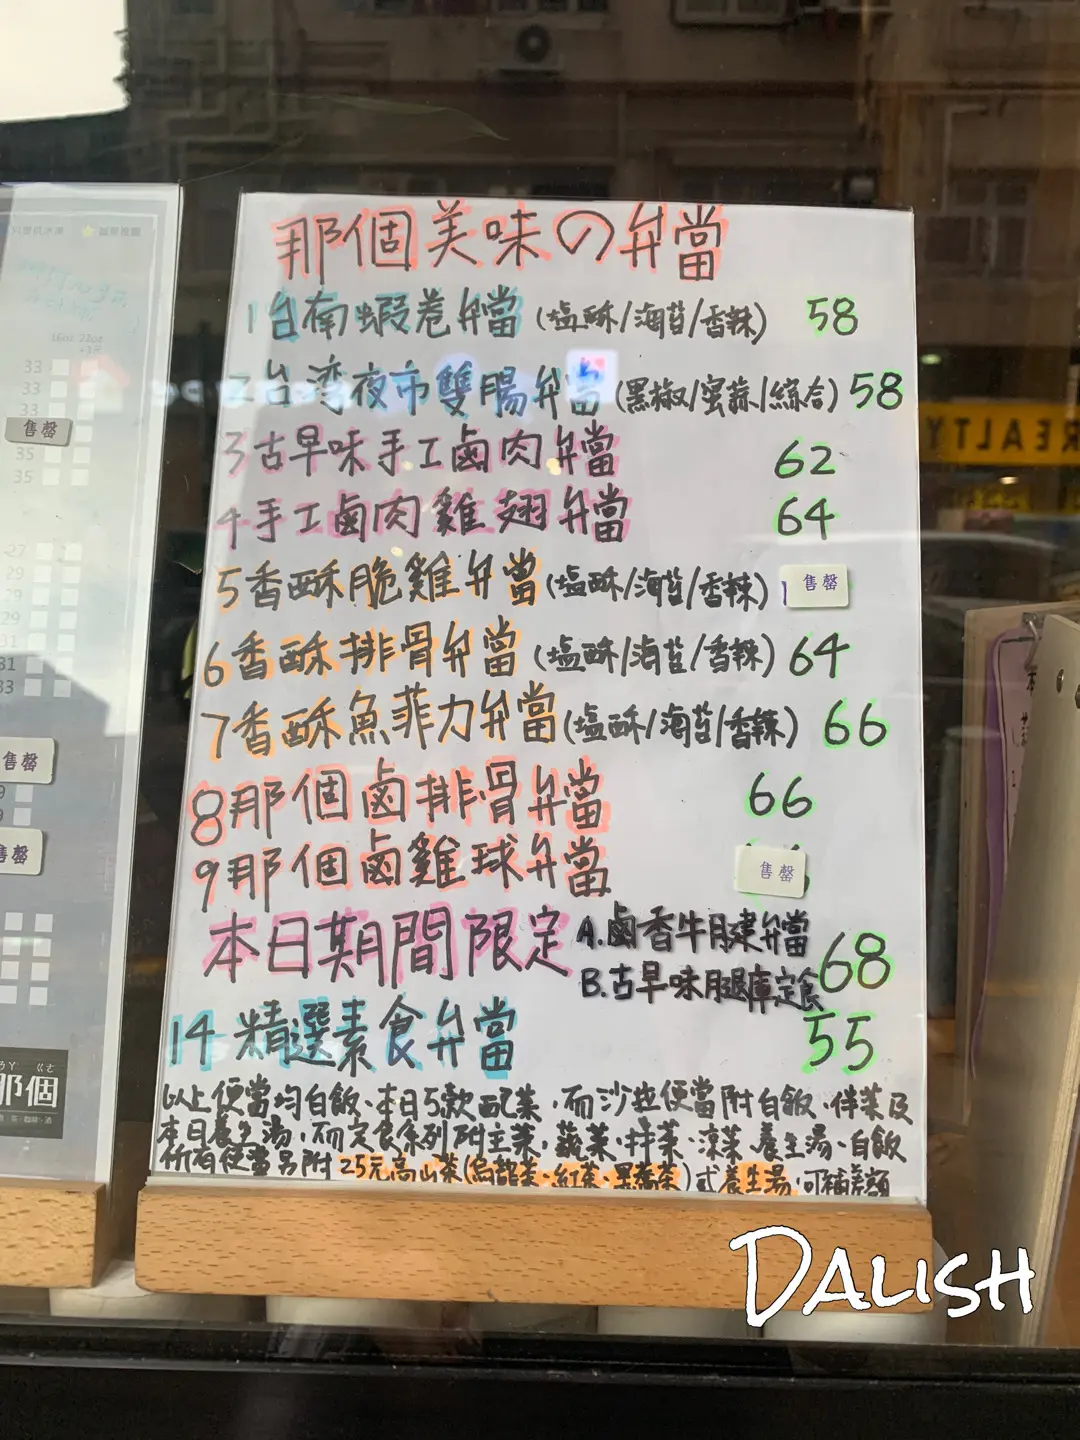 那個美味の弁當
1台南蝦卷弁當(塩酥/海苔/香辣) 58
2台湾夜市雙腸弁當(黑椒/蜜蒜/綜合) 58
3古早味手工鹵肉弁當 62
4手工鹵肉雞翅弁當 64
5香酥脆雞弁當(塩酥/海苔/香辣) 售罄
6香酥排骨弁當(塩酥/海苔/香辣) 64
7香酥魚菲力弁當(塩酥/海苔/香辣) 66
8那個鹵排骨弁當 66
9那個鹵雞球弁當 售罄
本日期間限定 A.鹵香牛腱弁當
B.古早味腿庫定食 68
14 精選素食弁當 55
以上便當均白飯、本日5款配菜,而沙拉便當附白飯、伴菜及
本日養生湯,而定食系列附主菜,蔬菜、拌菜、涼菜、養生湯、白飯
所有便當另附 25元高山茶(烏龍茶、紅茶、黑喬茶)或養生湯,可補差額
33
33
33
售罄
35
35
27
29
29
29
31
31
33
售罄
售罄
那個
REALTY
DALISH